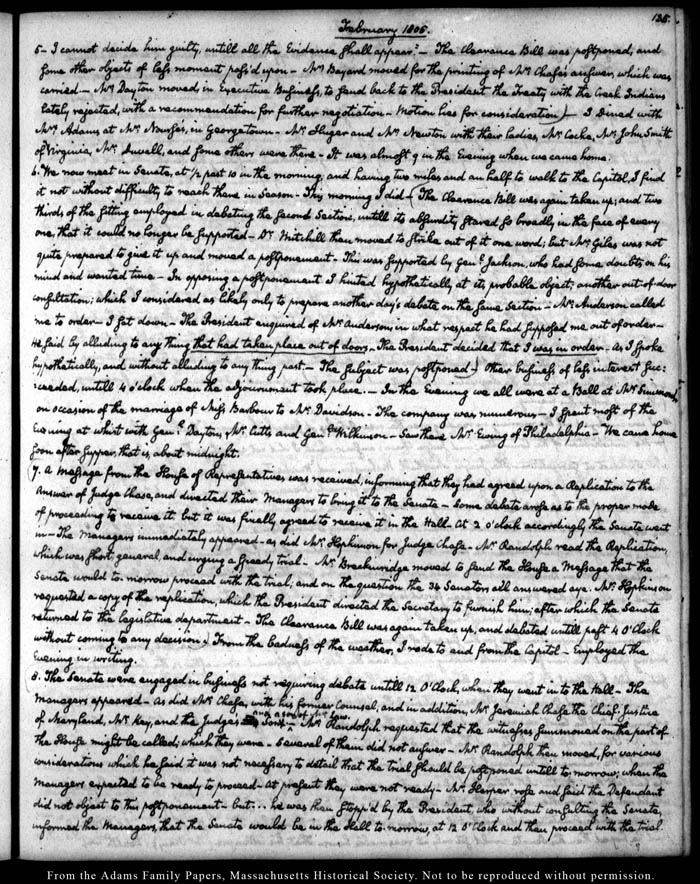 135.
February 1805.
5- I cannot decide him guilty, untill all the Evidence shall appear."- The Clearance Bill was postponed, and
some other objects of less moment pass'd upon- Mr. Bayard moved for the printing of Mr. Chase's answer, which was
carried- Mr. Dayton moved, in Executive Business, to send back to the President the Treaty with the Creek Indians
lately rejected, with a recommendation for further negotiation- Motion lies for consideration)- I Dined with
Mrs. Adams at Mr. Nourse's, in Georgetown- Mr. Huger and Mr. Newton with their ladies, Mr. Cocke, Mr. John Smith
of Virginia, Mr. Duvall, and some others were there- It was almost 9 in the Evening when we came home.
6. We now meet in Senate, at 1/2 past 10 in the morning, and having two miles and an half to walk to the Capitol, I find
it not without difficulty to reach there in season- This morning I did- (The Clearance Bill was again taken up; and two
thirds of the sitting employed in debating the second Section, untill its absurdity stared so broadly in the face of every
one, that it could no longer be supported- Dr. Mitchill then moved to strike out of it one word; but Mr. Giles was not
quite prepared to give it up and moved a postponement- This was supported by Genl. Jackson, who had some doubts on his
mind and wanted time- In opposing a postponement I hinted hypothetically, at its probable object; another out-of-door
consultation; which I considered as likely only to prepare another day's debate on the same section- Mr. Anderson called
me to order- I sat down- The President enquired of Mr. Anderson, in what respect he had supposed me out of order-
He said by alluding to any thing that had taken place out of doors- The President decided that I was in order- as I spoke
hypothetically, and without alluding to any thing past- The subject was postponed-) Other business of less interest suc:
ceeded, untill 4 o'clock when the adjournment took place.- In the Evening we all were at a Ball at Mr. Simmons's
on occasion of the marriage of Miss Barbour to Mr. Davidson- The company was numerous- I spent most of the
Evening at whist with Genl. Dayton, Mr. Cutts and Genl. Wilkinson- Saw there Mr. Ewing of Philadelphia- We came home
soon after supper, that is, about midnight.
(7. A Message from the House of Representatives was received, informing that they had agreed upon a Replication to the
Answer of Judge Chase, and directed their Managers to bring it to the Senate- Some debate arose as to the proper mode
of proceeding to receive it, but it was finally agreed to receive it in the Hall. At 2 o'clock accordingly the Senate went
in- The Managers immediately appeared- as did Mr. Hopkinson for Judge Chase- Mr. Randolph read the Replication,
which was short, general, and urging a speedy trial- Mr. Breckinridge moved to send the House a Message that the
Senate would to-morrow proceed with the trial, and on the question the 34 Senators all answered aye. Mr. Hopkinson
requested a copy of the replication, which the President directed the Secretary to furnish him; after which the Senate
returned to the legislative department- The Clearance Bill was again taken up, and debated untill past 4 O'Clock
without coming to any decision.) From the badness of the weather, I rode to and from the Capitol- Employed the
Evening in writing.
8. The Senate were engaged in business not requiring debate untill 12 O'Clock, when they went in to the Hall- The
Managers appeared- as did Mr. Chase, with his former Counsel, and in addition, Mr. Jeremiah Chase the Chief Justice
of Maryland, Mr. Key, and the Judge's Sons- Mr. Randolph requested that the witnesses summoned on the part of
the House might be called; which they were- Several of them did not answer- Mr. Randolph then moved, for various
considerations which he said it was not necessary to detail that the trial should be postponed untill to-morrow; when the
Managers expected to be ready to proceed- At present they were not ready- Mr. Harper rose and said the Defendant
did not object to this postponement- but... he was then stopp'd by the President, who without consulting the Senate,
informed the Managers, that the Senate would be in the Hall to-morrow, at 12 O'Clock and then proceed with the trial
From the Adams Family Papers, Massachusetts Historical Society. Not to be reproduced without permission.